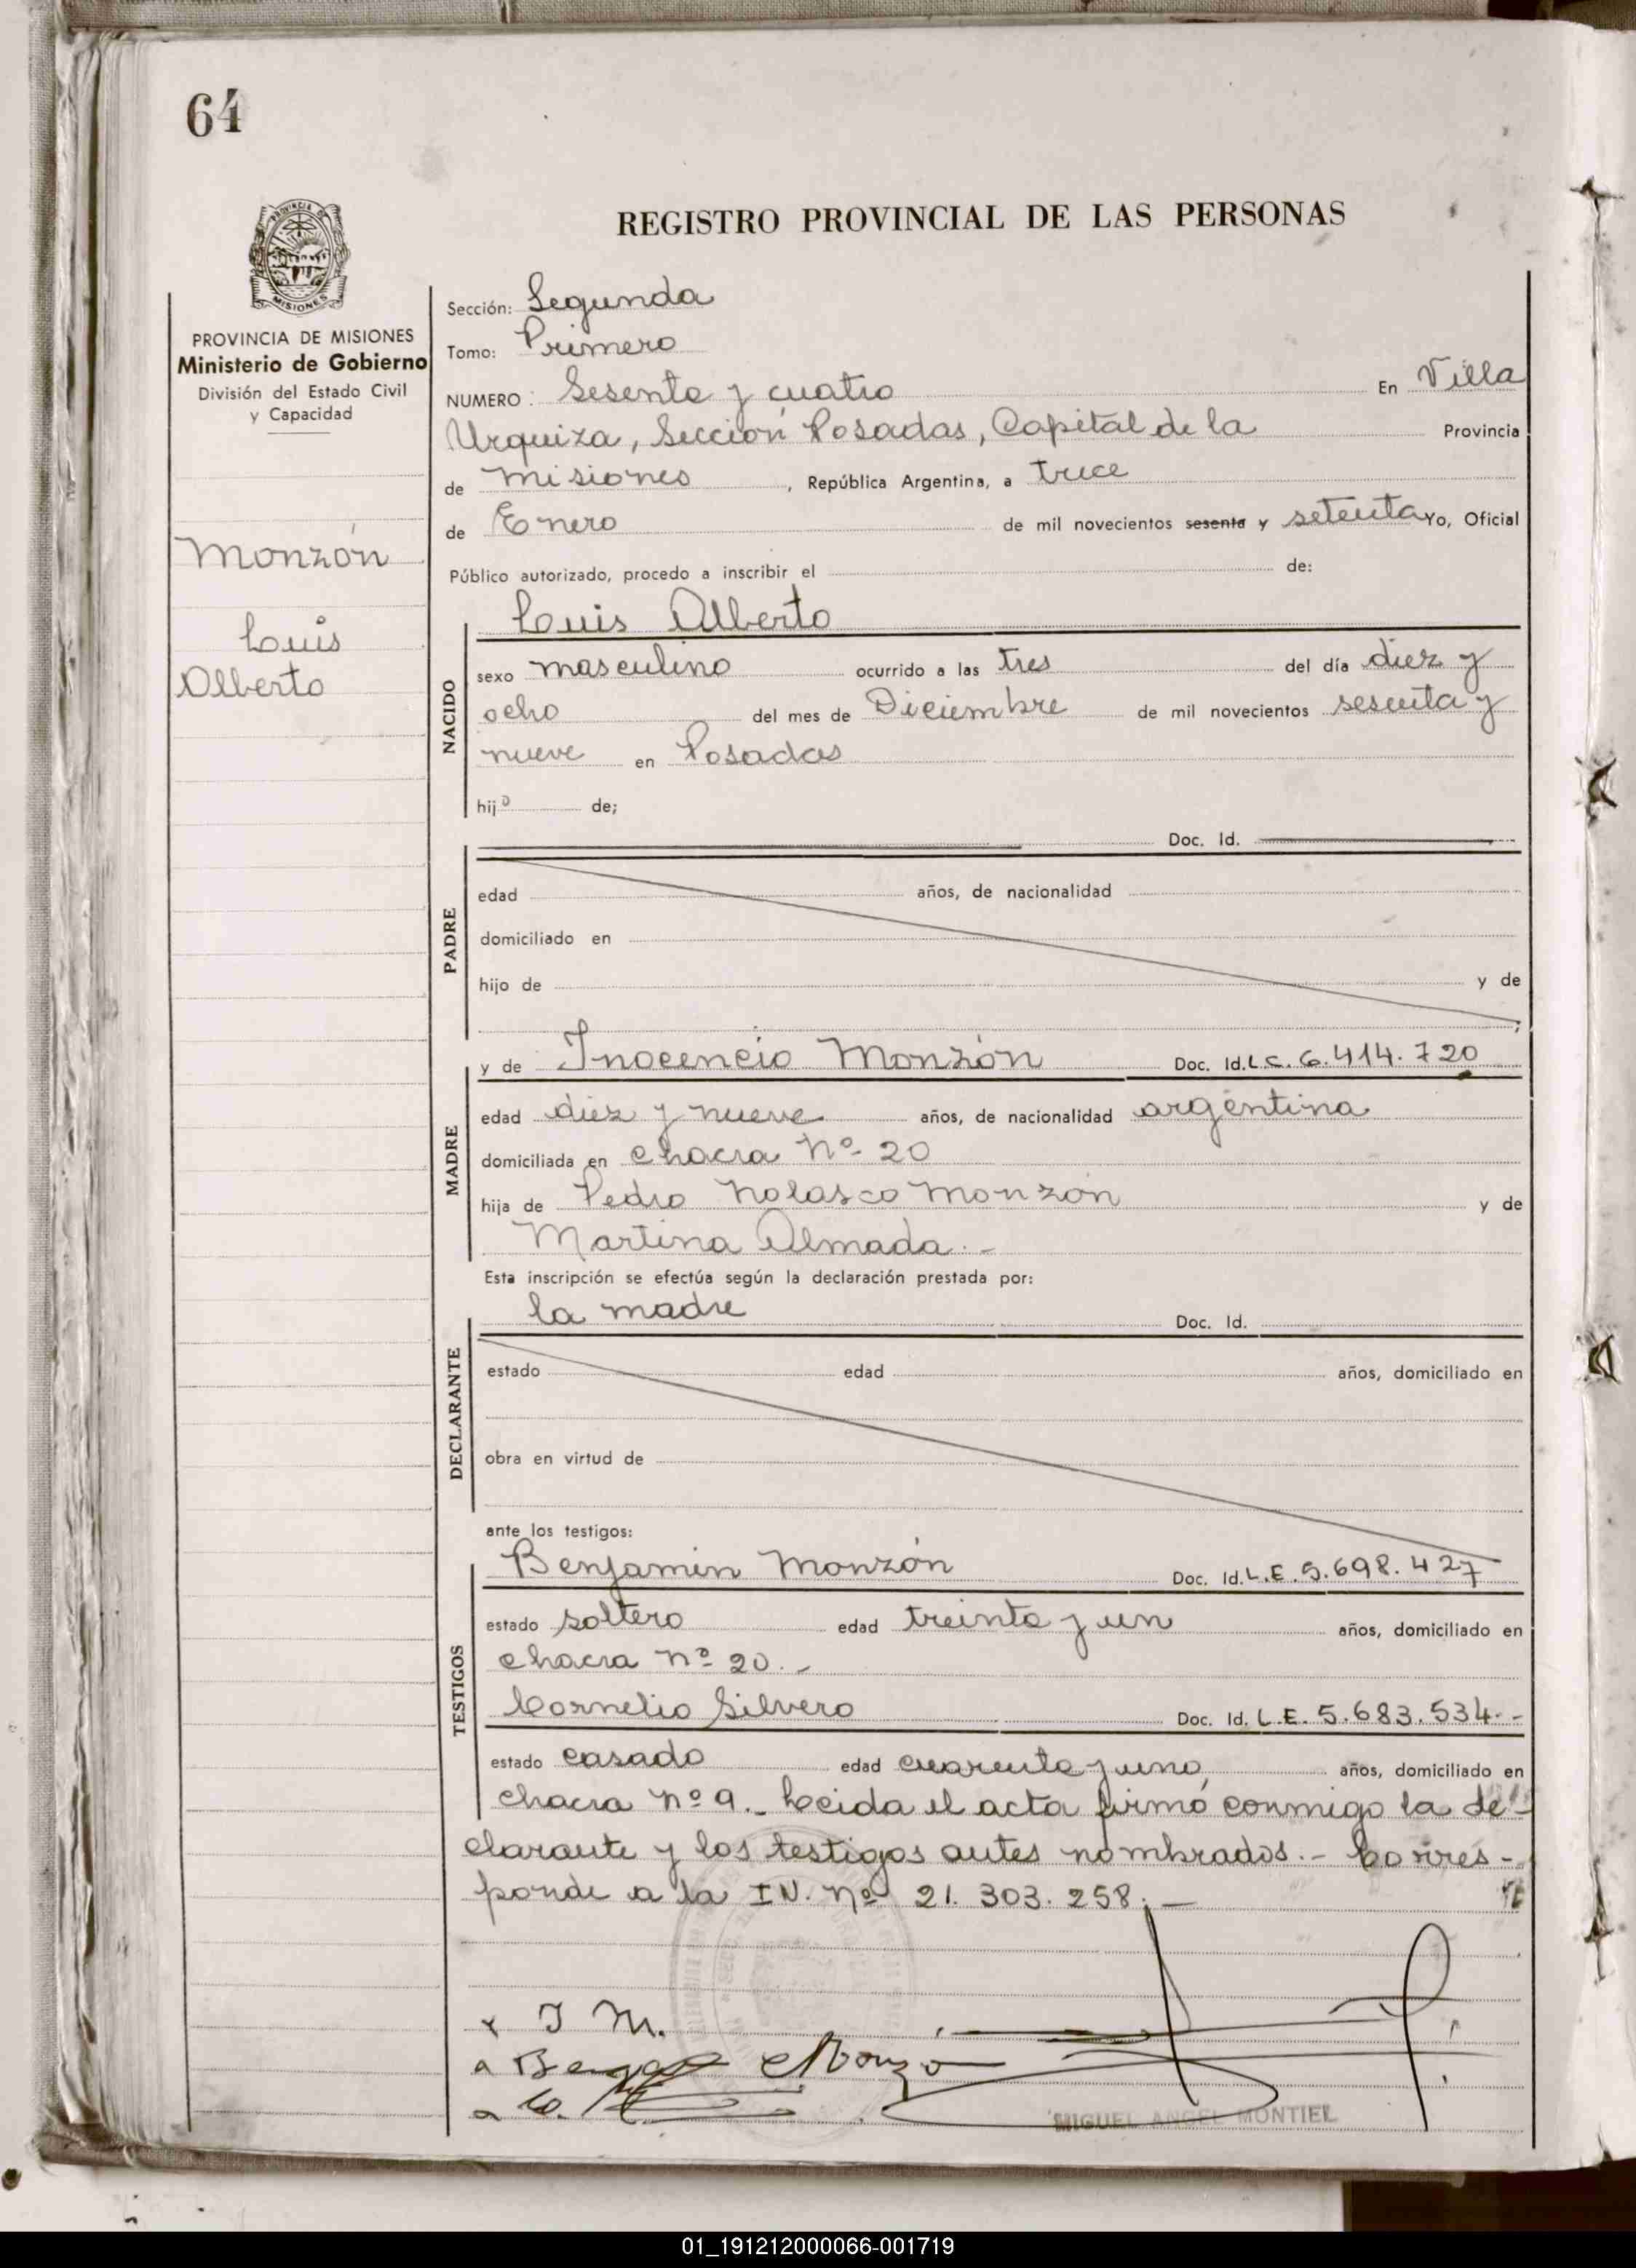 64
REGISTRO PROVINCIAL DE LAS PERSONAS
PROVINCIA DE
MISIONES
PROVINCIA DE MISIONES
Ministerio de Gobierno
División del Estado Civil
y Capacidad
Monzón
Luis
Alberto
Sección: Segunda
Tomo: Primero
NUMERO: Sesenta y cuatro En Villa
Urquiza, Sección Posadas, Capital de la Provincia
de Misiones, República Argentina, a trece
de Enero de mil novecientos sesenta y setenta Yo, Oficial
Público autorizado, procedo a inscribir el de:
Luis Alberto
NACIDO
sexo masculino ocurrido a las tres del día diez y
ocho del mes de Diciembre de mil novecientos sesenta y
nueve en Posadas
hijo de;
Doc. Id.
PADRE
edad años, de nacionalidad
domiciliado en
hijo de y de
y de Inocencio Monzón Doc. Id. L.C. 6.414.720
MADRE
edad diez y nueve años, de nacionalidad argentina
domiciliada en chacra Nº 20
hija de Pedro Nolasco Monzón y de
Martina Almada.-
Esta inscripción se efectúa según la declaración prestada por:
la madre Doc. Id.
DECLARANTE
estado edad años, domiciliado en
obra en virtud de
ante los testigos:
Benjamin Monzón Doc. Id. L.E. 5.698.427
TESTIGOS
estado soltero edad treinta y un años, domiciliado en
chacra nº 20.-
Cornelio Silvero Doc. Id. L.E. 5.683.534.-
estado casado edad cuarenta y uno, años, domiciliado en
chacra nº 9.- Leida el acta firmó conmigo la de-
clarante y los testigos antes nombrados.- Corres-
ponde a la I N. nº 21.303.258.-
x I M.
a Monzo
a Co.
MIGUEL ANGEL MONTIEL
01_191212000066-001719